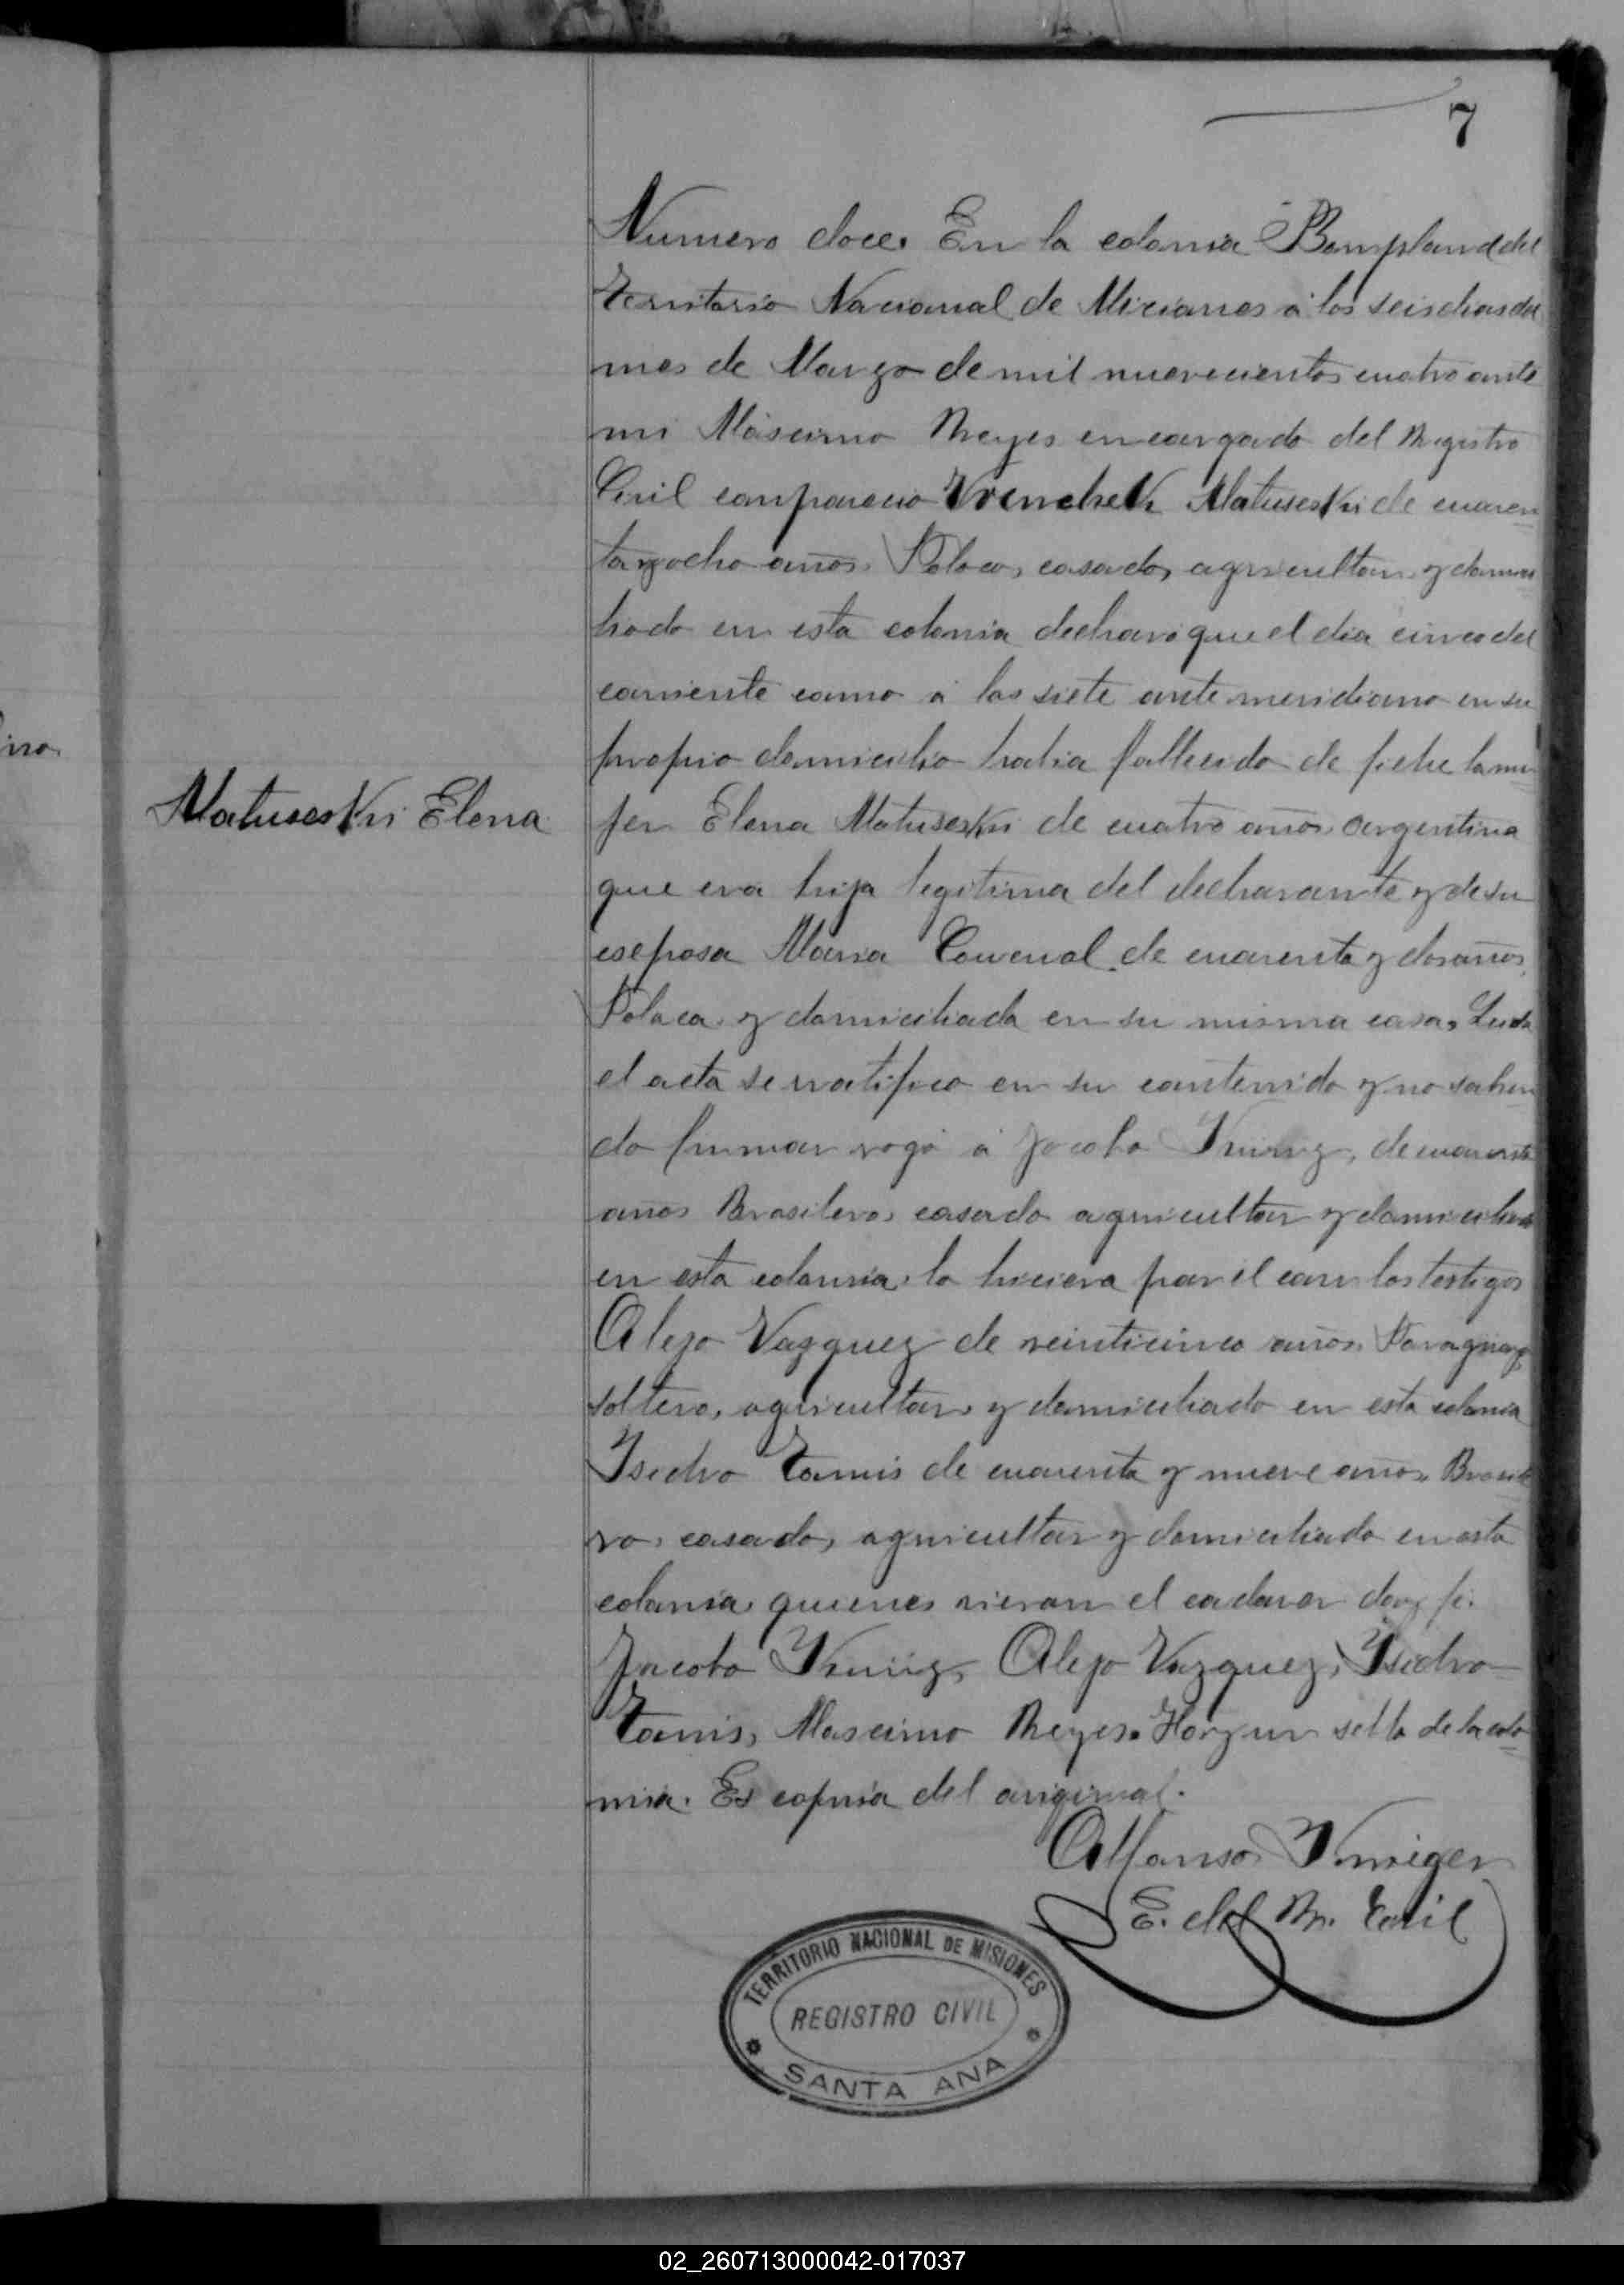 7
Numero doce. En la colonia Bompland del
Territorio Nacional de Miciones á los seis dias del
mes de Marzo de mil nuevecientos cuatro ante
mi Mascimo Reyes encargado del Registro
Civil comparecio Vrenchek Matuseski de cuaren
ta y ocho años, Polaco, casado, agricultor, y domici
liado en esta colonia declaró que el dia cinco del
corriente como á las siete ante meridiano en su
propio domicilio habia fallecido de fiebre la mu
Matuseski Elena
jer Elena Matuseski de cuatro años, argentina
que era hija legitima del declarante y de su
eseposa Maria de cuarenta y dos años,
Polaca y domiciliada en su misma casa, Leida
el acta se rratifico en su contenido y no sabien
do firmar rogó á Jacobo de cuarenta
años Brasilero, casado agricultor y domiciliado
en esta colonia, lo hiciera por él con los testigos
Alejo Vazquez de veinticinco años, Paraguayo,
soltero, agricultor, y domiciliado en esta colonia
Isidro Tamis de cuarenta y nueve años, Brasile
ro, casado, agricultor y domiciliado en esta
colonia, quienes vieron el cadaver doy fe.
Jacobo Alejo Vazquez, Isidro
Tamis, Mascimo Reyes. Hay un sello de la colo
nia. Es copia del original.
Alfonso
E. del R. Civil
TERRITORIO NACIONAL DE MISIONES
REGISTRO CIVIL
SANTA ANA
02_260713000042-017037